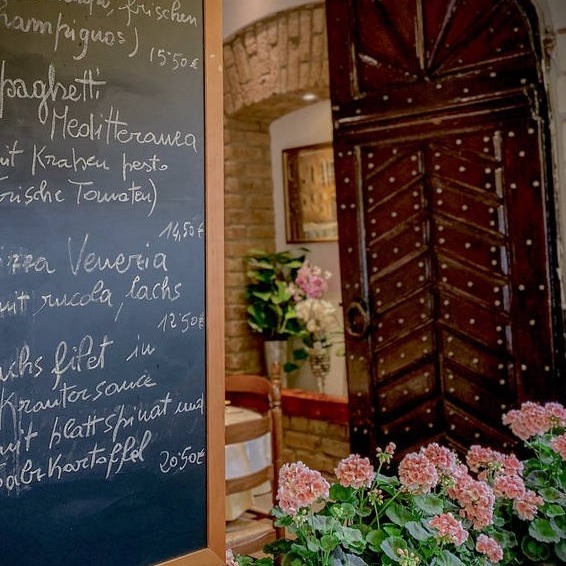 frischen
hampignos) 15'50€
paghetti
Meditteranea
it Kraben pesto
rische Tomaten)
14,50€
izza Venezia
mit rucola, lachs
12'50€
achs filet in
Kräutersauce
mit blattspinat und
alzkartoffel 20'50€